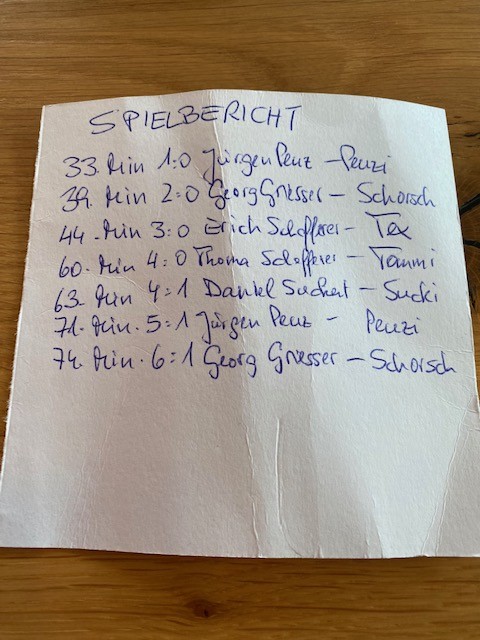 SPIELBERICHT
33. Min 1:0 Jürgen Penz - Penzi
39. Min 2:0 Georg Griesser - Schorsch
44. Min 3:0 Erich Schofferer - Tex
60. Min 4:0 Thoma Schofferer - Tommi
63. Min 4:1 Daniel Suchert - Sucki
71. Min. 5:1 Jürgen Penz - Penzi
74. Min. 6:1 Georg Griesser - Schorsch